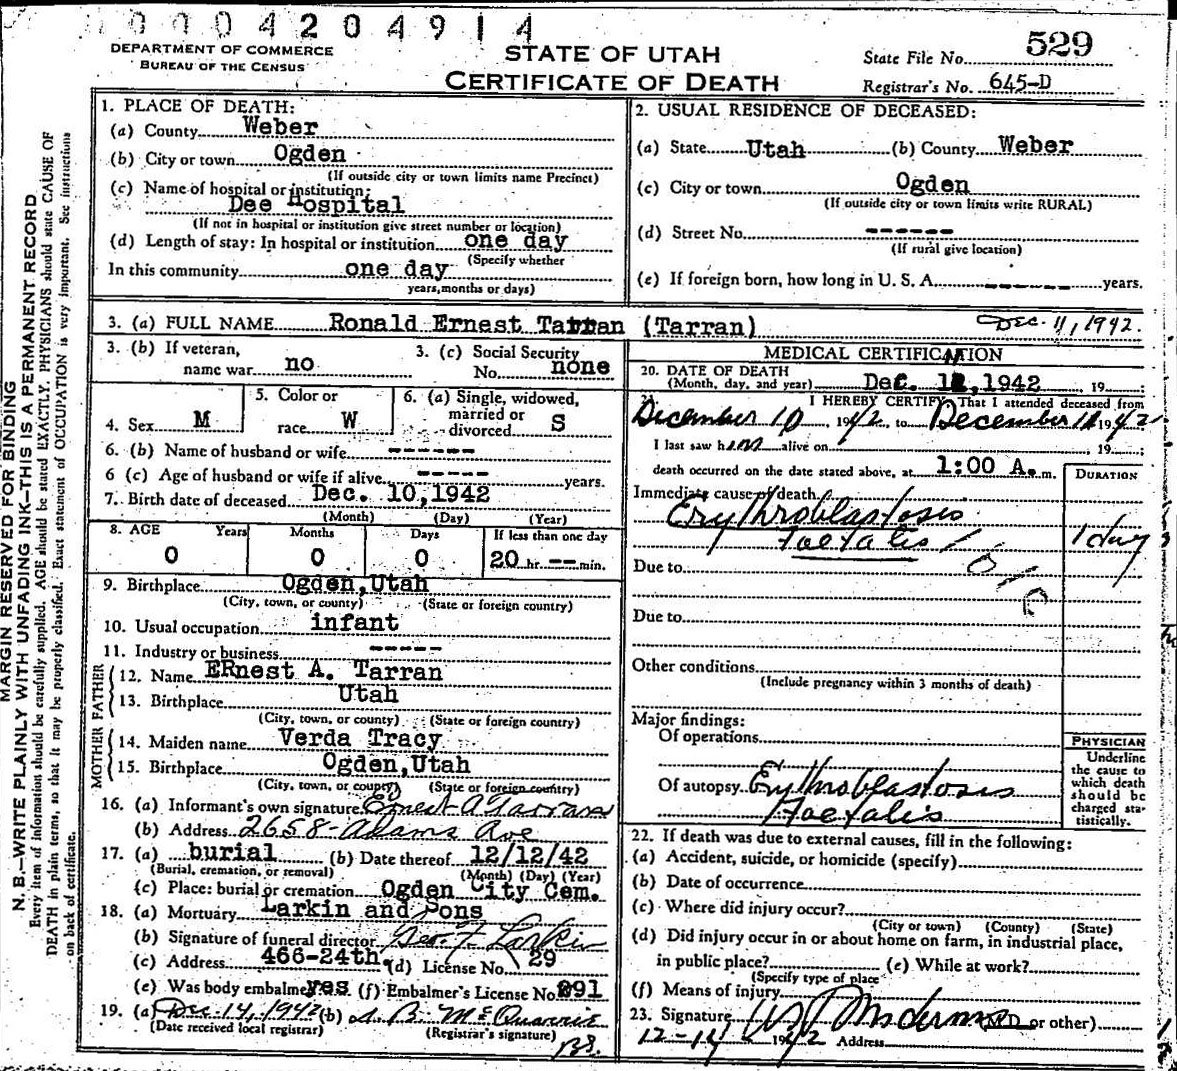 0004204914
DEPARTMENT OF COMMERCE
BUREAU OF THE CENSUS
STATE OF UTAH
CERTIFICATE OF DEATH
State File No. 529
Registrar's No. 645-D
MARGIN RESERVED FOR BINDING
N. B.—WRITE PLAINLY WITH UNFADING INK—THIS IS A PERMANENT RECORD
Every item of information should be carefully supplied. AGE should be stated EXACTLY. PHYSICIANS should state CAUSE OF
DEATH in plain terms, so that it may be properly classified. Exact statement of OCCUPATION is very important. See instructions
on back of certificate.
1. PLACE OF DEATH:
(a) County Weber
(b) City or town Ogden
(If outside city or town limits name Precinct)
(c) Name of hospital or institution:
Dee Hospital
(If not in hospital or institution give street number or location)
(d) Length of stay: In hospital or institution one day
(Specify whether
In this community one day
years, months or days)
2. USUAL RESIDENCE OF DECEASED:
(a) State Utah (b) County Weber
(c) City or town Ogden
(If outside city or town limits write RURAL)
(d) Street No. ------
(If rural give location)
(e) If foreign born, how long in U. S. A. ------ years.
3. (a) FULL NAME Ronald Ernest Tarran (Tarran) Dec. 11, 1942.
3. (b) If veteran, name war no
3. (c) Social Security No. none
4. Sex M
5. Color or race W
6. (a) Single, widowed, married or divorced S
6. (b) Name of husband or wife ------
6 (c) Age of husband or wife if alive ----- years.
7. Birth date of deceased Dec. 10, 1942
(Month) (Day) (Year)
8. AGE Years Months Days If less than one day
0 0 0 20 hr. -- min.
9. Birthplace Ogden, Utah
(City, town, or county) (State or foreign country)
10. Usual occupation infant
11. Industry or business -----
FATHER
12. Name ERnest A. Tarran
13. Birthplace Utah
(City, town, or county) (State or foreign country)
MOTHER
14. Maiden name Verda Tracy
15. Birthplace Ogden, Utah
(City, town, or county) (State or foreign country)
16. (a) Informant's own signature Ernest A Tarran
(b) Address 2658- Adams Ave
17. (a) burial (b) Date thereof 12/12/42
(Burial, cremation, or removal) (Month) (Day) (Year)
(c) Place: burial or cremation Ogden City Cem.
18. (a) Mortuary Larkin and Sons
(b) Signature of funeral director Geo. F. Larkin
(c) Address 466-24th. (d) License No. 29
(e) Was body embalmed yes (f) Embalmer's License No. 891
19. (a) Dec. 14, 1942 (b) McQuarrie
(Date received local registrar) (Registrar's signature)
MEDICAL CERTIFICATION
20. DATE OF DEATH
(Month, day, and year) Dec. 11, 1942 19
21. I HEREBY CERTIFY, That I attended deceased from
December 10, 1942 to December 11 1942
I last saw him alive on 19
death occurred on the date stated above, at 1:00 A. m.
DURATION
Immediate cause of death
Erythroblastosis
Foetalis 1 day
Due to
Due to
Other conditions
(Include pregnancy within 3 months of death)
Major findings:
Of operations
Of autopsy Erythroblastosis
Foetalis
PHYSICIAN
Underline
the cause to
which death
should be
charged sta-
tistically.
22. If death was due to external causes, fill in the following:
(a) Accident, suicide, or homicide (specify)
(b) Date of occurrence
(c) Where did injury occur?
(City or town) (County) (State)
(d) Did injury occur in or about home on farm, in industrial place,
in public place? (e) While at work?
(Specify type of place
(f) Means of injury
23. Signature (M.D. or other)
12-14 1942 Address